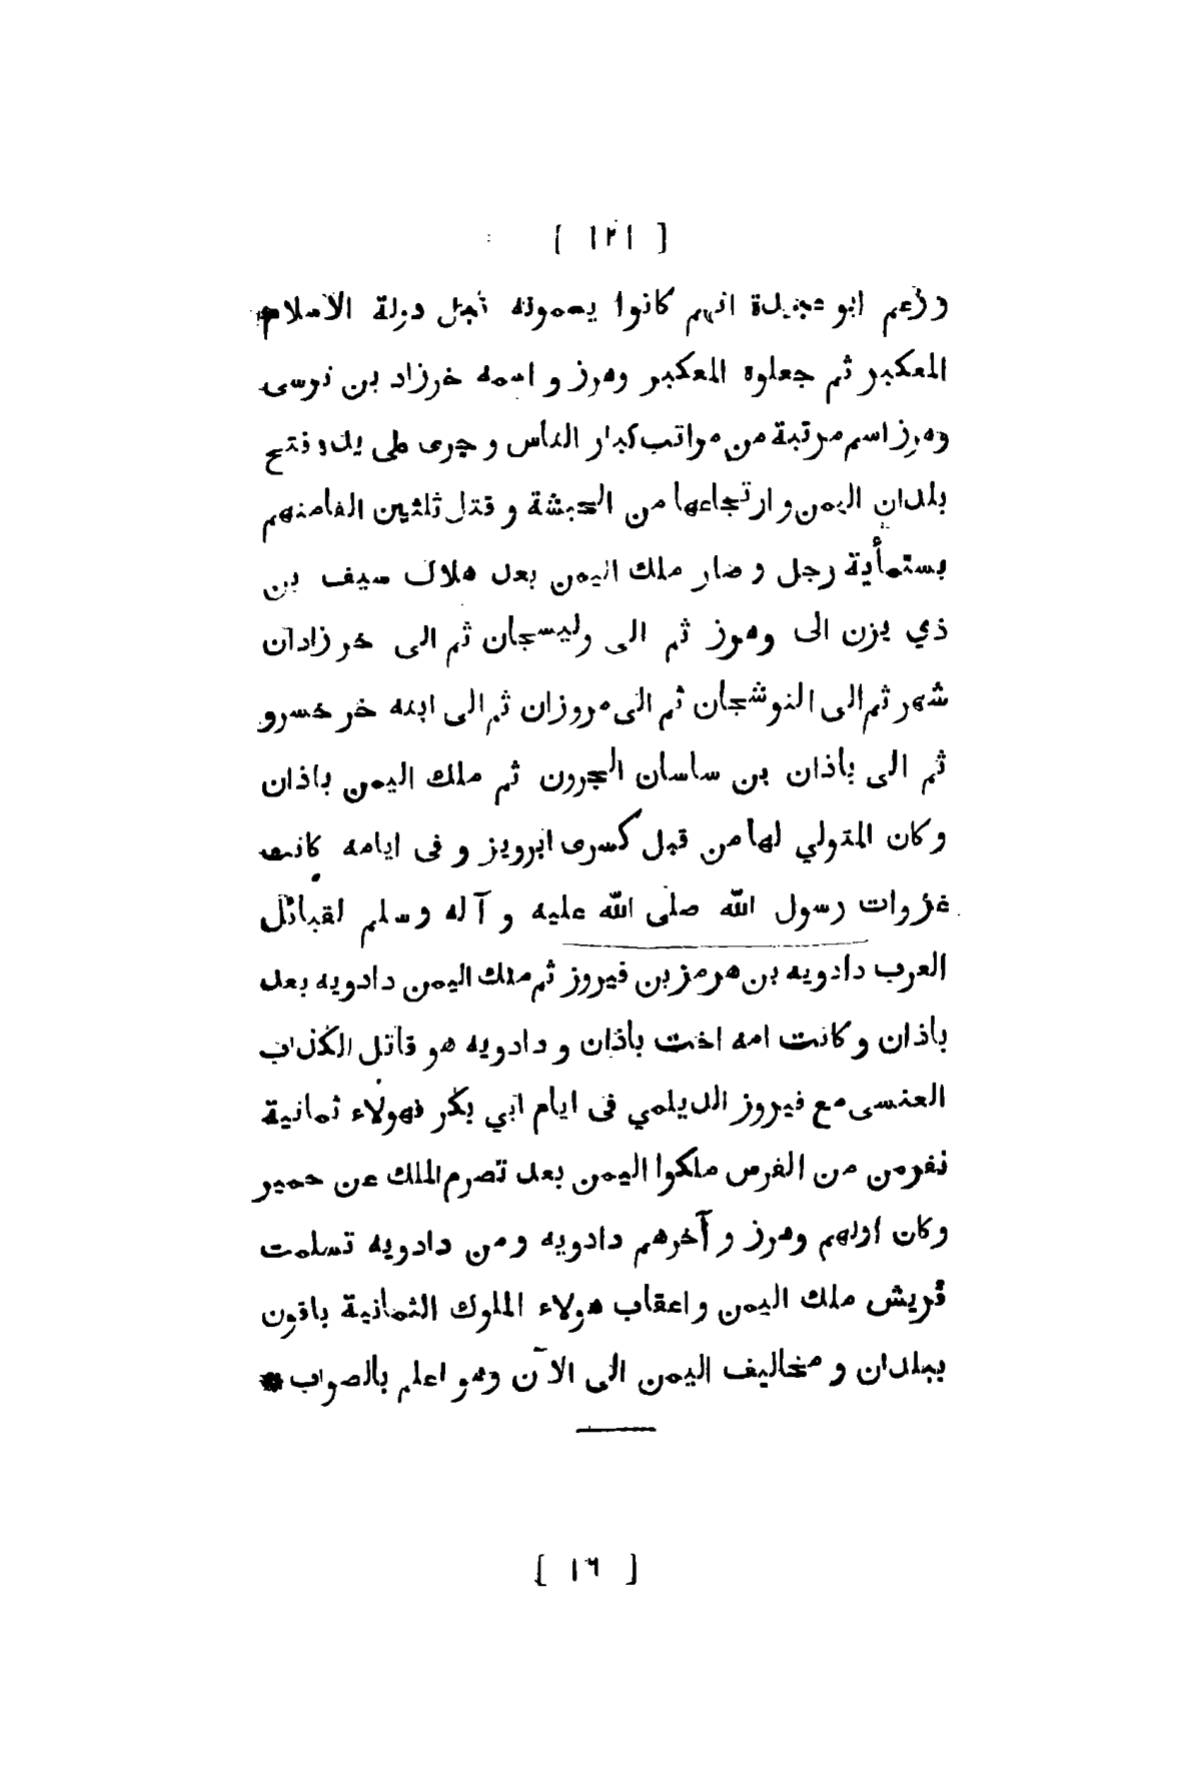 [ ١٢١ ]
وزعم ابو عبيدة انهم كانوا يسمونه قبل دولة الاسلام
المعكبر ثم جعلوة المعكبر وهرز و اسمه خرزاد بن نرسى
وهرز اسم مرتبة من مراتب كبار الناس و جرى على يده فتح
بلدان اليمن و ارتجاعها من الحبشة و قتل ثلثين الفامنهم
بستمأية رجل و صار ملك اليمن بعد هلاك سيف بن
ذي يزن الى وهرز ثم الى وليسجان ثم الى خر زادان
شهر ثم الى النوشجان ثم الى مروزان ثم الى ابنه خر خسرو
ثم الى باذان بن ساسان الجرون ثم ملك اليمن باذان
وكان المتولي لها من قبل كسرى ابرويز و فى ايامه كانت
غزوات رسول الله صلى الله عليه و آله وسلم لقبائل
العرب دادويه بن هرمز بن فيروز ثم ملك اليمن دادويه بعد
باذان و كانت امه اخت باذان و دادويه هو قاتل الكذاب
العنسى مع فيروز الديلمي فى ايام ابي بكر فهولاء ثمانية
نفرمن من الفرس ملكوا اليمن بعد تصرم الملك عن حمير
وكان اولهم وهرز و آخرهم دادويه ومن دادويه تسلمت
قريش ملك اليمن و اعقاب هولاء الملوك الثمانية باقون
ببلدان و مخاليف اليمن الى الآن وهو اعلم بالصواب *
[ ١٦ ]